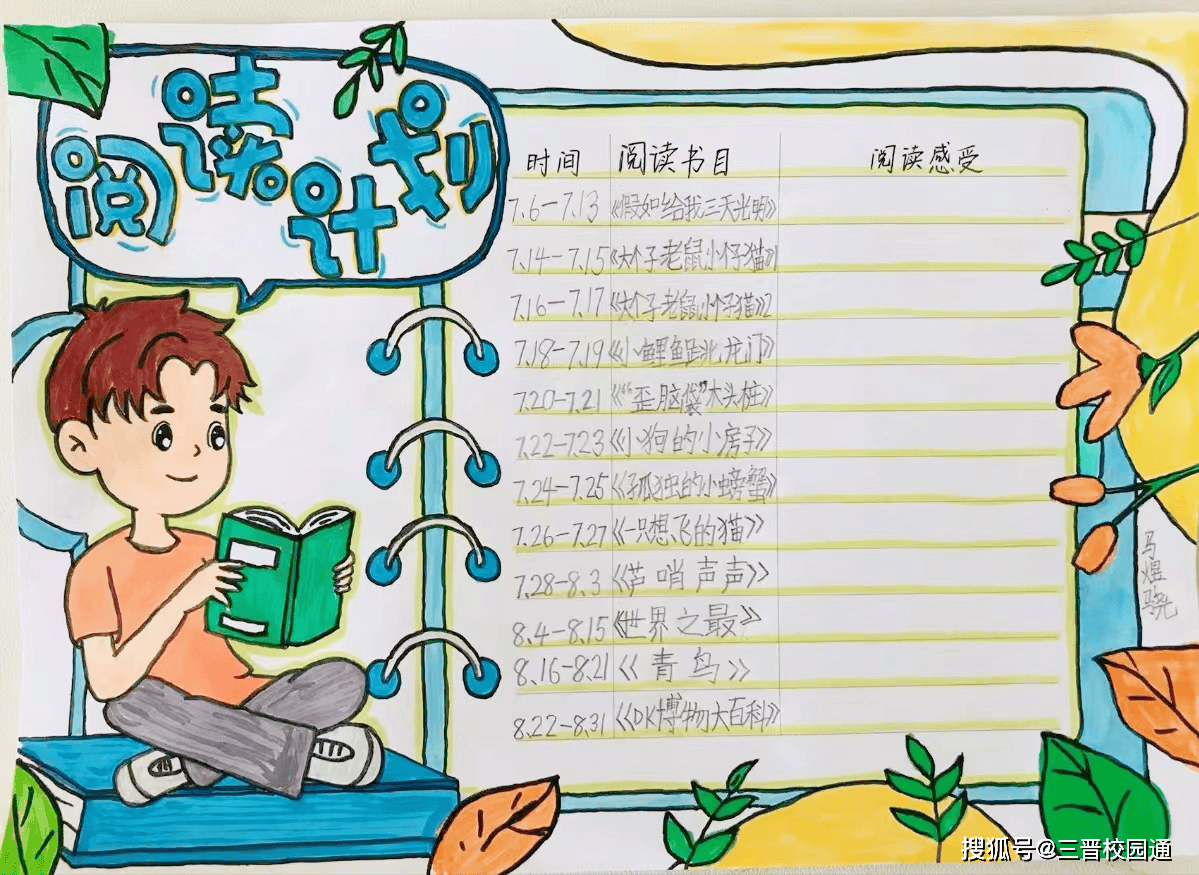 阅读计划
时间 阅读书目 阅读感受
7.6-7.13 《假如给我三天光明》
7.14-7.15 《大个子老鼠小个子猫》1
7.16-7.17 《大个子老鼠小个子猫》2
7.18-7.19 《小鲤鱼跳龙门》
7.20-7.21 《“歪脑袋”木头桩》
7.22-7.23 《小狗的小房子》
7.24-7.25 《孤独的小螃蟹》
7.26-7.27 《一只想飞的猫》
7.28-8.3 《芦哨声声》
8.4-8.15 《世界之最》
8.16-8.21 《青鸟》
8.22-8.31 《DK博物大百科》
马煜骁
搜狐号@三晋校园通